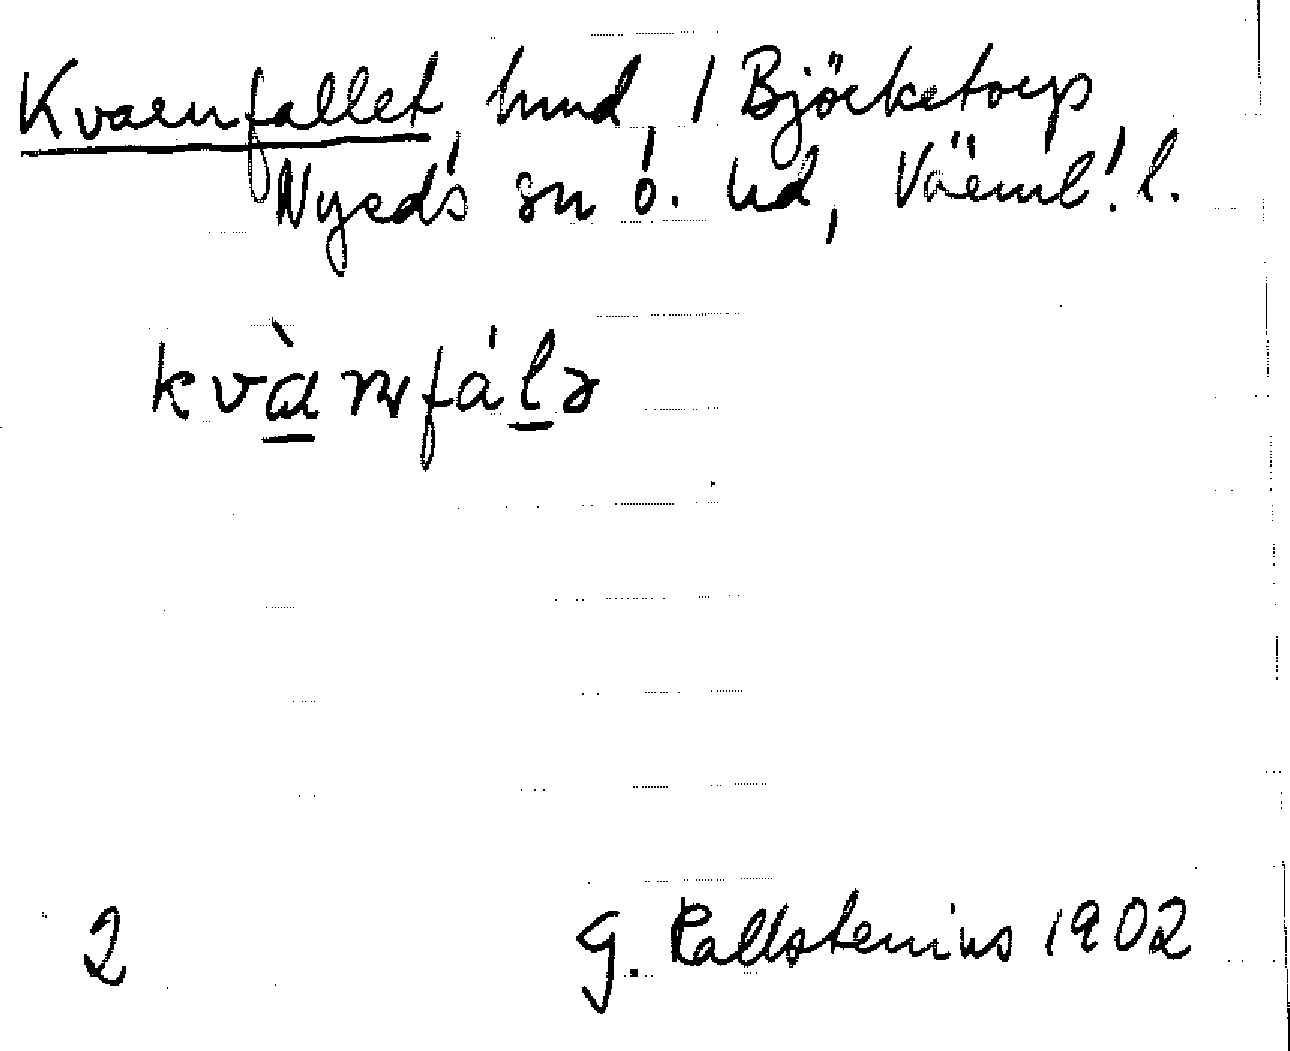 Kvarnfallet, hmd, 1 Björketorp
Nyeds sn o. hd, Värml. l.
kvὰɳfálə
2 G. Kallstenius 1902